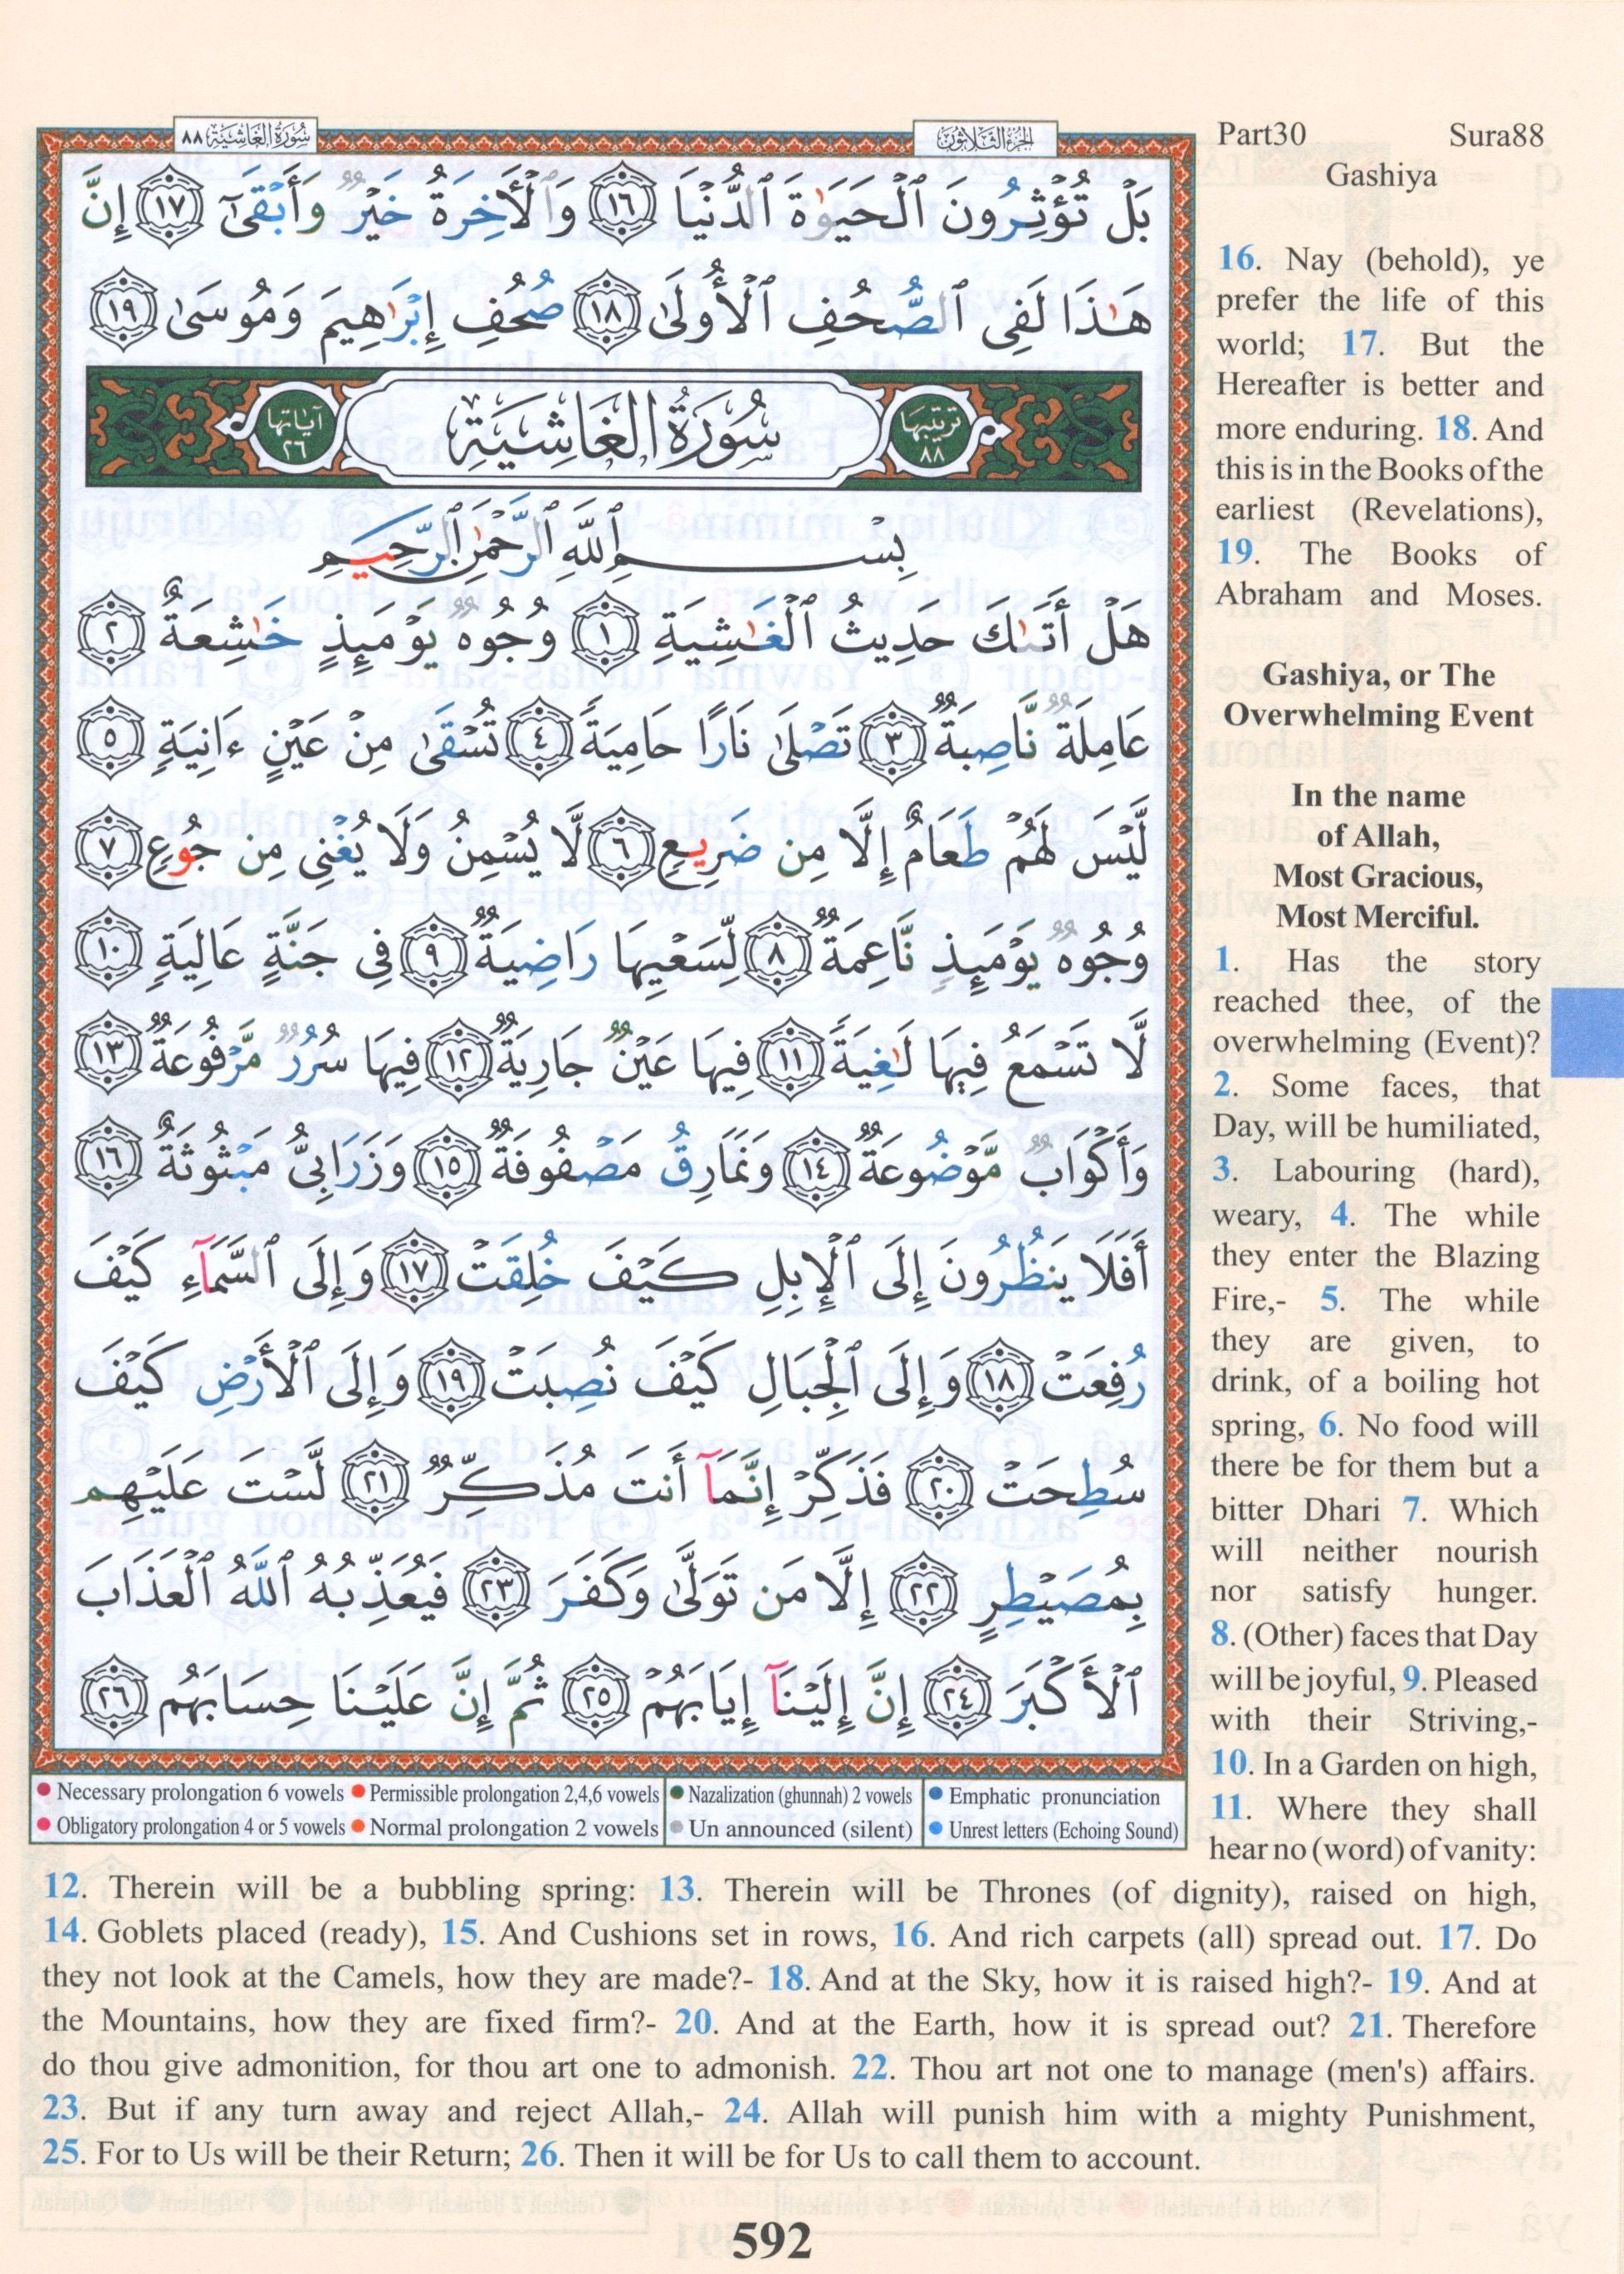 سُورَةُ الغَاشِيَةِ ٨٨
الجُزْءُ الثَّلَاثُونَ
Part30 Sura88
Gashiya
بَلْ تُؤْثِرُونَ ٱلْحَيَوٰةَ ٱلدُّنْيَا ١٦ وَٱلْأَخِرَةُ خَيْرٌ وَأَبْقَىٰٓ ١٧ إِنَّ
هَٰذَا لَفِى ٱلصُّحُفِ ٱلْأُولَىٰ ١٨ صُحُفِ إِبْرَٰهِيمَ وَمُوسَىٰ ١٩
ترتيبها ٨٨
سُورَةُ الغَاشِيَةِ
آياتها ٢٦
بِسْمِ ٱللَّهِ ٱلرَّحْمَٰنِ ٱلرَّحِيمِ
هَلْ أَتَىٰكَ حَدِيثُ ٱلْغَٰشِيَةِ ١ وُجُوهٌ يَوْمَئِذٍ خَٰشِعَةٌ ٢
عَامِلَةٌ نَّاصِبَةٌ ٣ تَصْلَىٰ نَارًا حَامِيَةً ٤ تُسْقَىٰ مِنْ عَيْنٍ ءَانِيَةٍ ٥
لَّيْسَ لَهُمْ طَعَامٌ إِلَّا مِن ضَرِيعٍ ٦ لَّا يُسْمِنُ وَلَا يُغْنِى مِن جُوعٍ ٧
وُجُوهٌ يَوْمَئِذٍ نَّاعِمَةٌ ٨ لِّسَعْيِهَا رَاضِيَةٌ ٩ فِى جَنَّةٍ عَالِيَةٍ ١٠
لَّا تَسْمَعُ فِيهَا لَٰغِيَةً ١١ فِيهَا عَيْنٌ جَارِيَةٌ ١٢ فِيهَا سُرُرٌ مَّرْفُوعَةٌ ١٣
وَأَكْوَابٌ مَّوْضُوعَةٌ ١٤ وَنَمَارِقُ مَصْفُوفَةٌ ١٥ وَزَرَابِىُّ مَبْثُوثَةٌ ١٦
أَفَلَا يَنظُرُونَ إِلَى ٱلْإِبِلِ كَيْفَ خُلِقَتْ ١٧ وَإِلَى ٱلسَّمَآءِ كَيْفَ
رُفِعَتْ ١٨ وَإِلَى ٱلْجِبَالِ كَيْفَ نُصِبَتْ ١٩ وَإِلَى ٱلْأَرْضِ كَيْفَ
سُطِحَتْ ٢٠ فَذَكِّرْ إِنَّمَآ أَنتَ مُذَكِّرٌ ٢١ لَّسْتَ عَلَيْهِم
بِمُصَيْطِرٍ ٢٢ إِلَّا مَن تَوَلَّىٰ وَكَفَرَ ٢٣ فَيُعَذِّبُهُ ٱللَّهُ ٱلْعَذَابَ
ٱلْأَكْبَرَ ٢٤ إِنَّ إِلَيْنَآ إِيَابَهُمْ ٢٥ ثُمَّ إِنَّ عَلَيْنَا حِسَابَهُم ٢٦
Necessary prolongation 6 vowels Permissible prolongation 2,4,6 vowels Nazalization (ghunnah) 2 vowels Emphatic pronunciation
Obligatory prolongation 4 or 5 vowels Normal prolongation 2 vowels Un announced (silent) Unrest letters (Echoing Sound)
16. Nay (behold), ye
prefer the life of this
world; 17. But the
Hereafter is better and
more enduring. 18. And
this is in the Books of the
earliest (Revelations),
19. The Books of
Abraham and Moses.
Gashiya, or The
Overwhelming Event
In the name
of Allah,
Most Gracious,
Most Merciful.
1. Has the story
reached thee, of the
overwhelming (Event)?
2. Some faces, that
Day, will be humiliated,
3. Labouring (hard),
weary, 4. The while
they enter the Blazing
Fire,- 5. The while
they are given, to
drink, of a boiling hot
spring, 6. No food will
there be for them but a
bitter Dhari 7. Which
will neither nourish
nor satisfy hunger.
8. (Other) faces that Day
will be joyful, 9. Pleased
with their Striving,-
10. In a Garden on high,
11. Where they shall
hear no (word) of vanity:
12. Therein will be a bubbling spring: 13. Therein will be Thrones (of dignity), raised on high,
14. Goblets placed (ready), 15. And Cushions set in rows, 16. And rich carpets (all) spread out. 17. Do
they not look at the Camels, how they are made?- 18. And at the Sky, how it is raised high?- 19. And at
the Mountains, how they are fixed firm?- 20. And at the Earth, how it is spread out? 21. Therefore
do thou give admonition, for thou art one to admonish. 22. Thou art not one to manage (men's) affairs.
23. But if any turn away and reject Allah,- 24. Allah will punish him with a mighty Punishment,
25. For to Us will be their Return; 26. Then it will be for Us to call them to account.
592